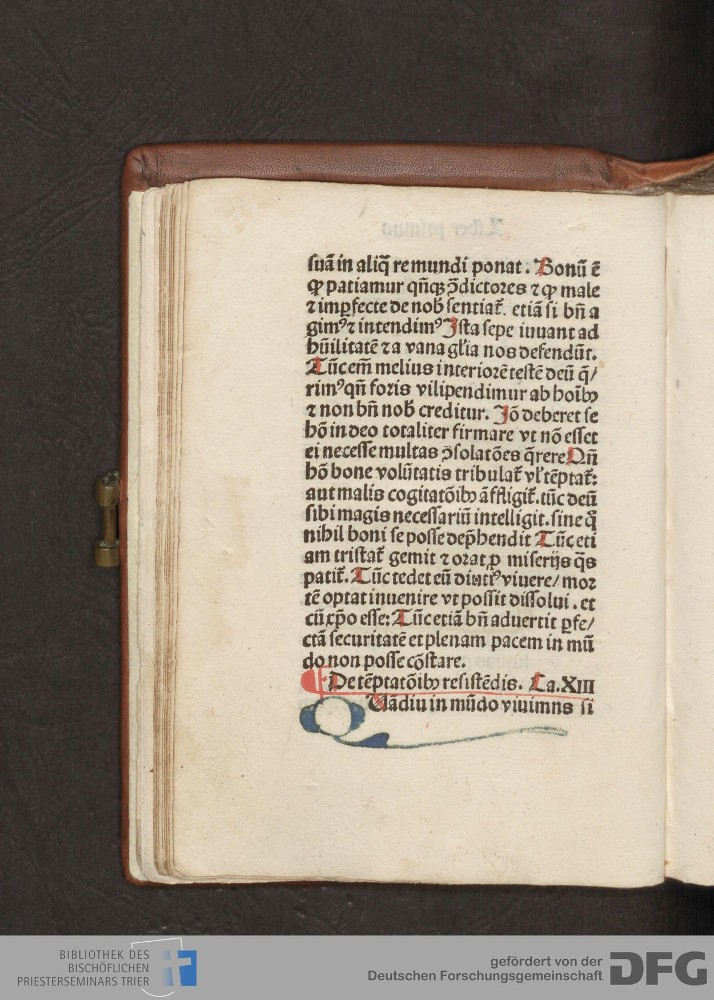 suā in aliq̄ re mundi ponat. Bonū ē
ꝙ patiamur qn̄qꝫ ꝯ̄dictores ⁊ ꝙ male
⁊ imꝑfecte de nob̄ sentiat᷑. etiā si bn̄ a
gimꝰ ⁊ intendimꝰ Ista sepe iuuant ad
hūilitatē ⁊ a vana gl̄ia nos defendūt.
Tūc em̄ melius interiorē testē deū q̄/
rimꝰ qn̄ foris vilipendimur ab hoīb⁹
⁊ non bn̄ nob̄ creditur. Iō deberet se
hō in deo totaliter firmare vt nō esset
ei necesse multas ꝯ̄solatōes q̄rere Qn̄
hō bone volūtatis tribulat᷑ vl̓ tēptat᷑:
aut malis cogitatōib⁹ āffligit᷑. tūc deū
sibi magis necessariū intelligit. sine q̊
nihil boni se posse dep̄hendit Tūc eti
am tristat᷑ gemit ⁊ orat ꝓ miserijs q̄s
patit᷑. Tūc tedet eū diutiꝰ viuere/ mor
tē optat inuenire vt possit dissolui. et
cū xp̄o esse: Tūc etiā bn̄ aduertit ꝑfe/
ctā securitatē et plenam pacem in mū
do non posse cōstare.
De tēptatōib⁹ resistēdis. Ca. XIII
QUādiu in mūdo viuimns si
BIBLIOTHEK DES
BISCHÖFLICHEN
PRIESTERSEMINARS TRIER
gefördert von der
Deutschen Forschungsgemeinschaft
DFG